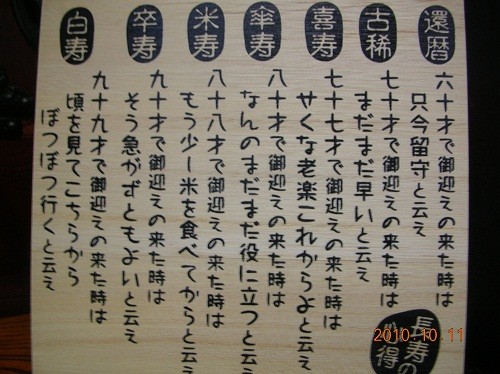 長寿の
心得
還暦
六十才で御迎えの来た時は
只今留守と云え
古稀
七十才で御迎えの来た時は
まだまだ早いと云え
喜寿
七十七才で御迎えの来た時は
せくな老楽これからよと云え
傘寿
八十才で御迎えの来た時は
なんのまだまだ役に立つと云え
米寿
八十八才で御迎えの来た時は
もう少し米を食べてからと云え
卒寿
九十才で御迎えの来た時は
そう急がずともよいと云え
白寿
九十九才で御迎えの来た時は
頃を見てこちらから
ぼつぼつ行くと云え
2010.10.11